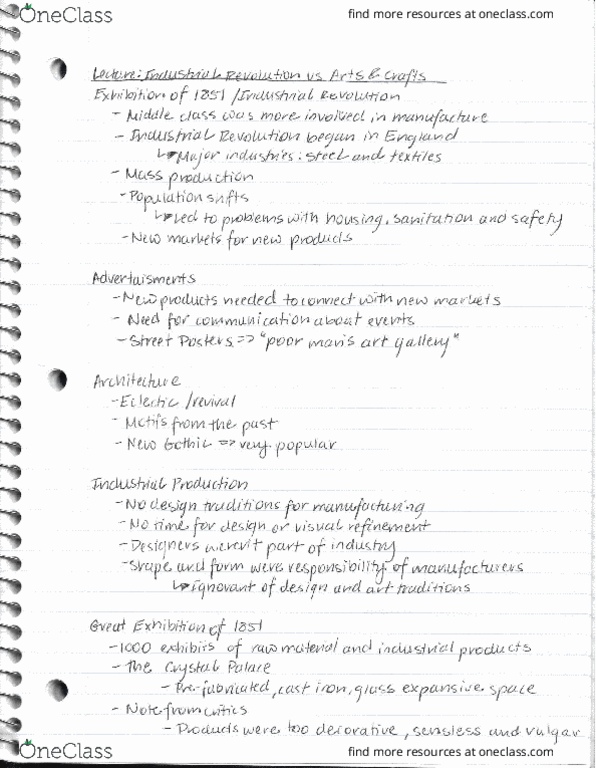 OneClass
find more resources at oneclass.com
Lecture: Industrial Revolution vs Arts & Crafts
Exhibition of 1851 / Industrial Revolution
- Middle class was more involved in manufacture
- Industrial Revolution began in England
↳ Major industries: steel and textiles
- Mass production
- Population shifts
↳ Led to problems with housing, sanitation and safety
- New markets for new products
Advertaisments
- New products needed to connect with new markets
- Need for communication about events
- Street Posters => "poor man's art gallery"
Architecture
- Eclectic / revival
- Motifs from the past
- New Gothic => very popular
Industrial Production
- No design traditions for manufacturing
- No time for design or visual refinement
- Designers weren't part of industry
- Shape and form were responsibility of manufacturers
↳ ignorant of design and art traditions
Great Exhibition of 1851
- 1000 exhibits of raw material and industrial products
- The Crystal Palace
- Pre-fabricated, cast iron, glass expansive space
- Note from critics
- Products were too decorative, sensless and vulgar
OneClass
find more resources at oneclass.com